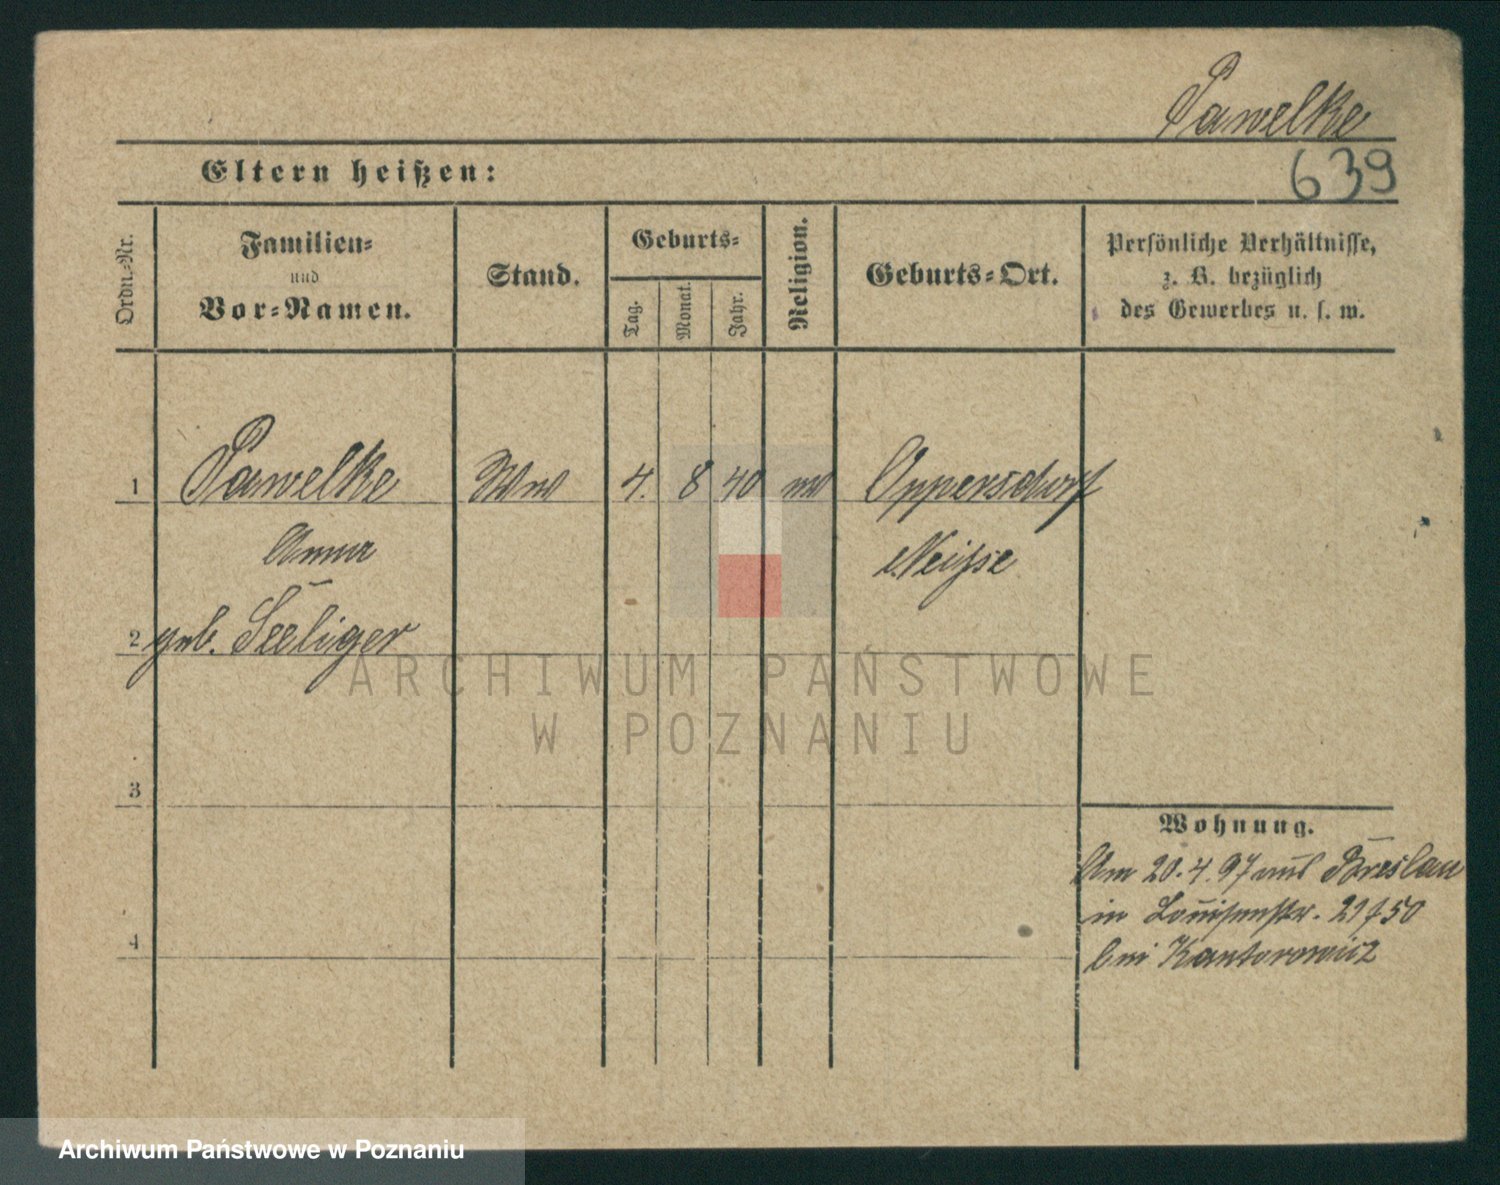 Pawelke
Eltern heißen:
639
Ordn.-Nr.
Familien-
und
Vor-Namen.
Stand.
Geburts-
Tag.
Monat.
Jahr.
Religion.
Geburts-Ort.
Persönliche Verhältnisse,
z. B. bezüglich
des Gewerbes u. s. w.
1 Pawelke Ww 4. 8 40 Oppersdorf
Anna Neisse
2 geb. Seeliger
ARCHIWUM PAŃSTWOWE
W POZNANIU
3
Wohnung.
Am 20.4.97 aus Breslau
in Louisenstr.
4
bei Kantorowicz
Archiwum Państwowe w Poznaniu